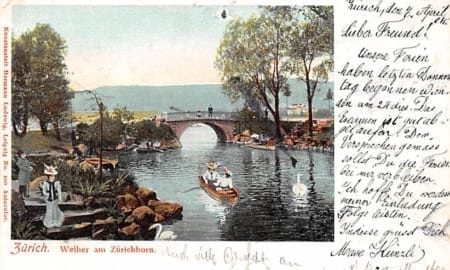 Kunstanstalt Hermann Ludewig, Leipzig No. 900 Autocolor.
Zürich. Weiher am Zürichhorn.
Zürich, den 7. April
lieber Freund!
Unsere Ferien
haben letzten Donners
tag begonnen
den am 24 dies Das
Examen ist gut ab
gelaufen. Dem
Versprechen gemäss
sollst Du die Ferien
bei mir verbleiben.
Ich hoffe Du werdest
meiner Einladung
Folge leisten.
Indess grüsst Dich
Künzli
Auch viele an